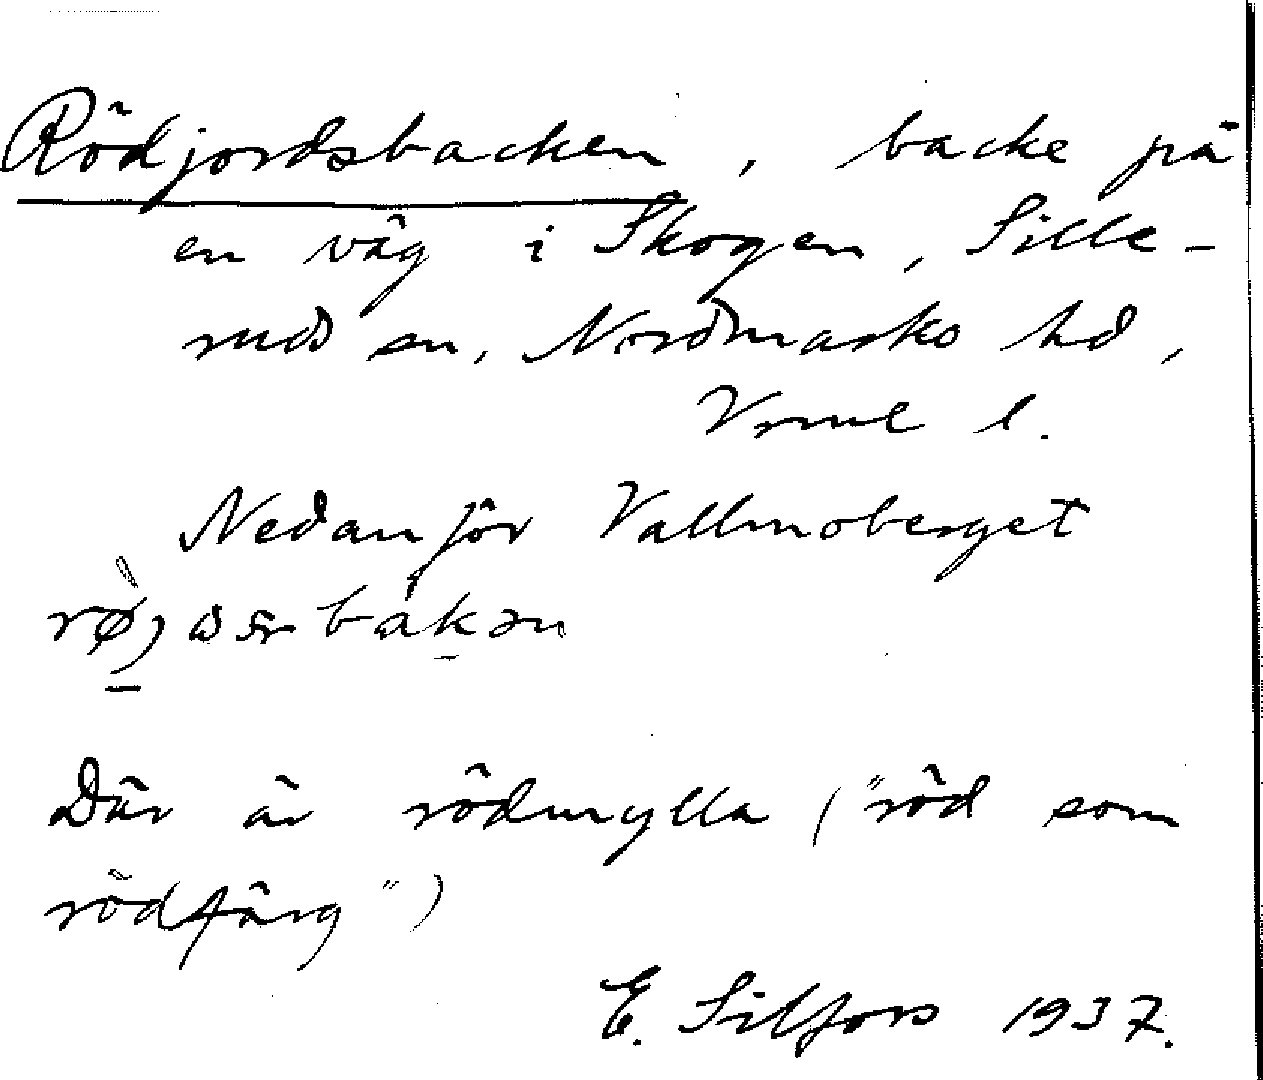 Rödjordsbacken, backe på
en väg i Skogen, Sille-
ruds sn, Nordmarks hd,
Vrml l.
Nedanför Vallmoberget
Där är rödmylla ("röd som
rödfärg")
E. Silfors 1937.